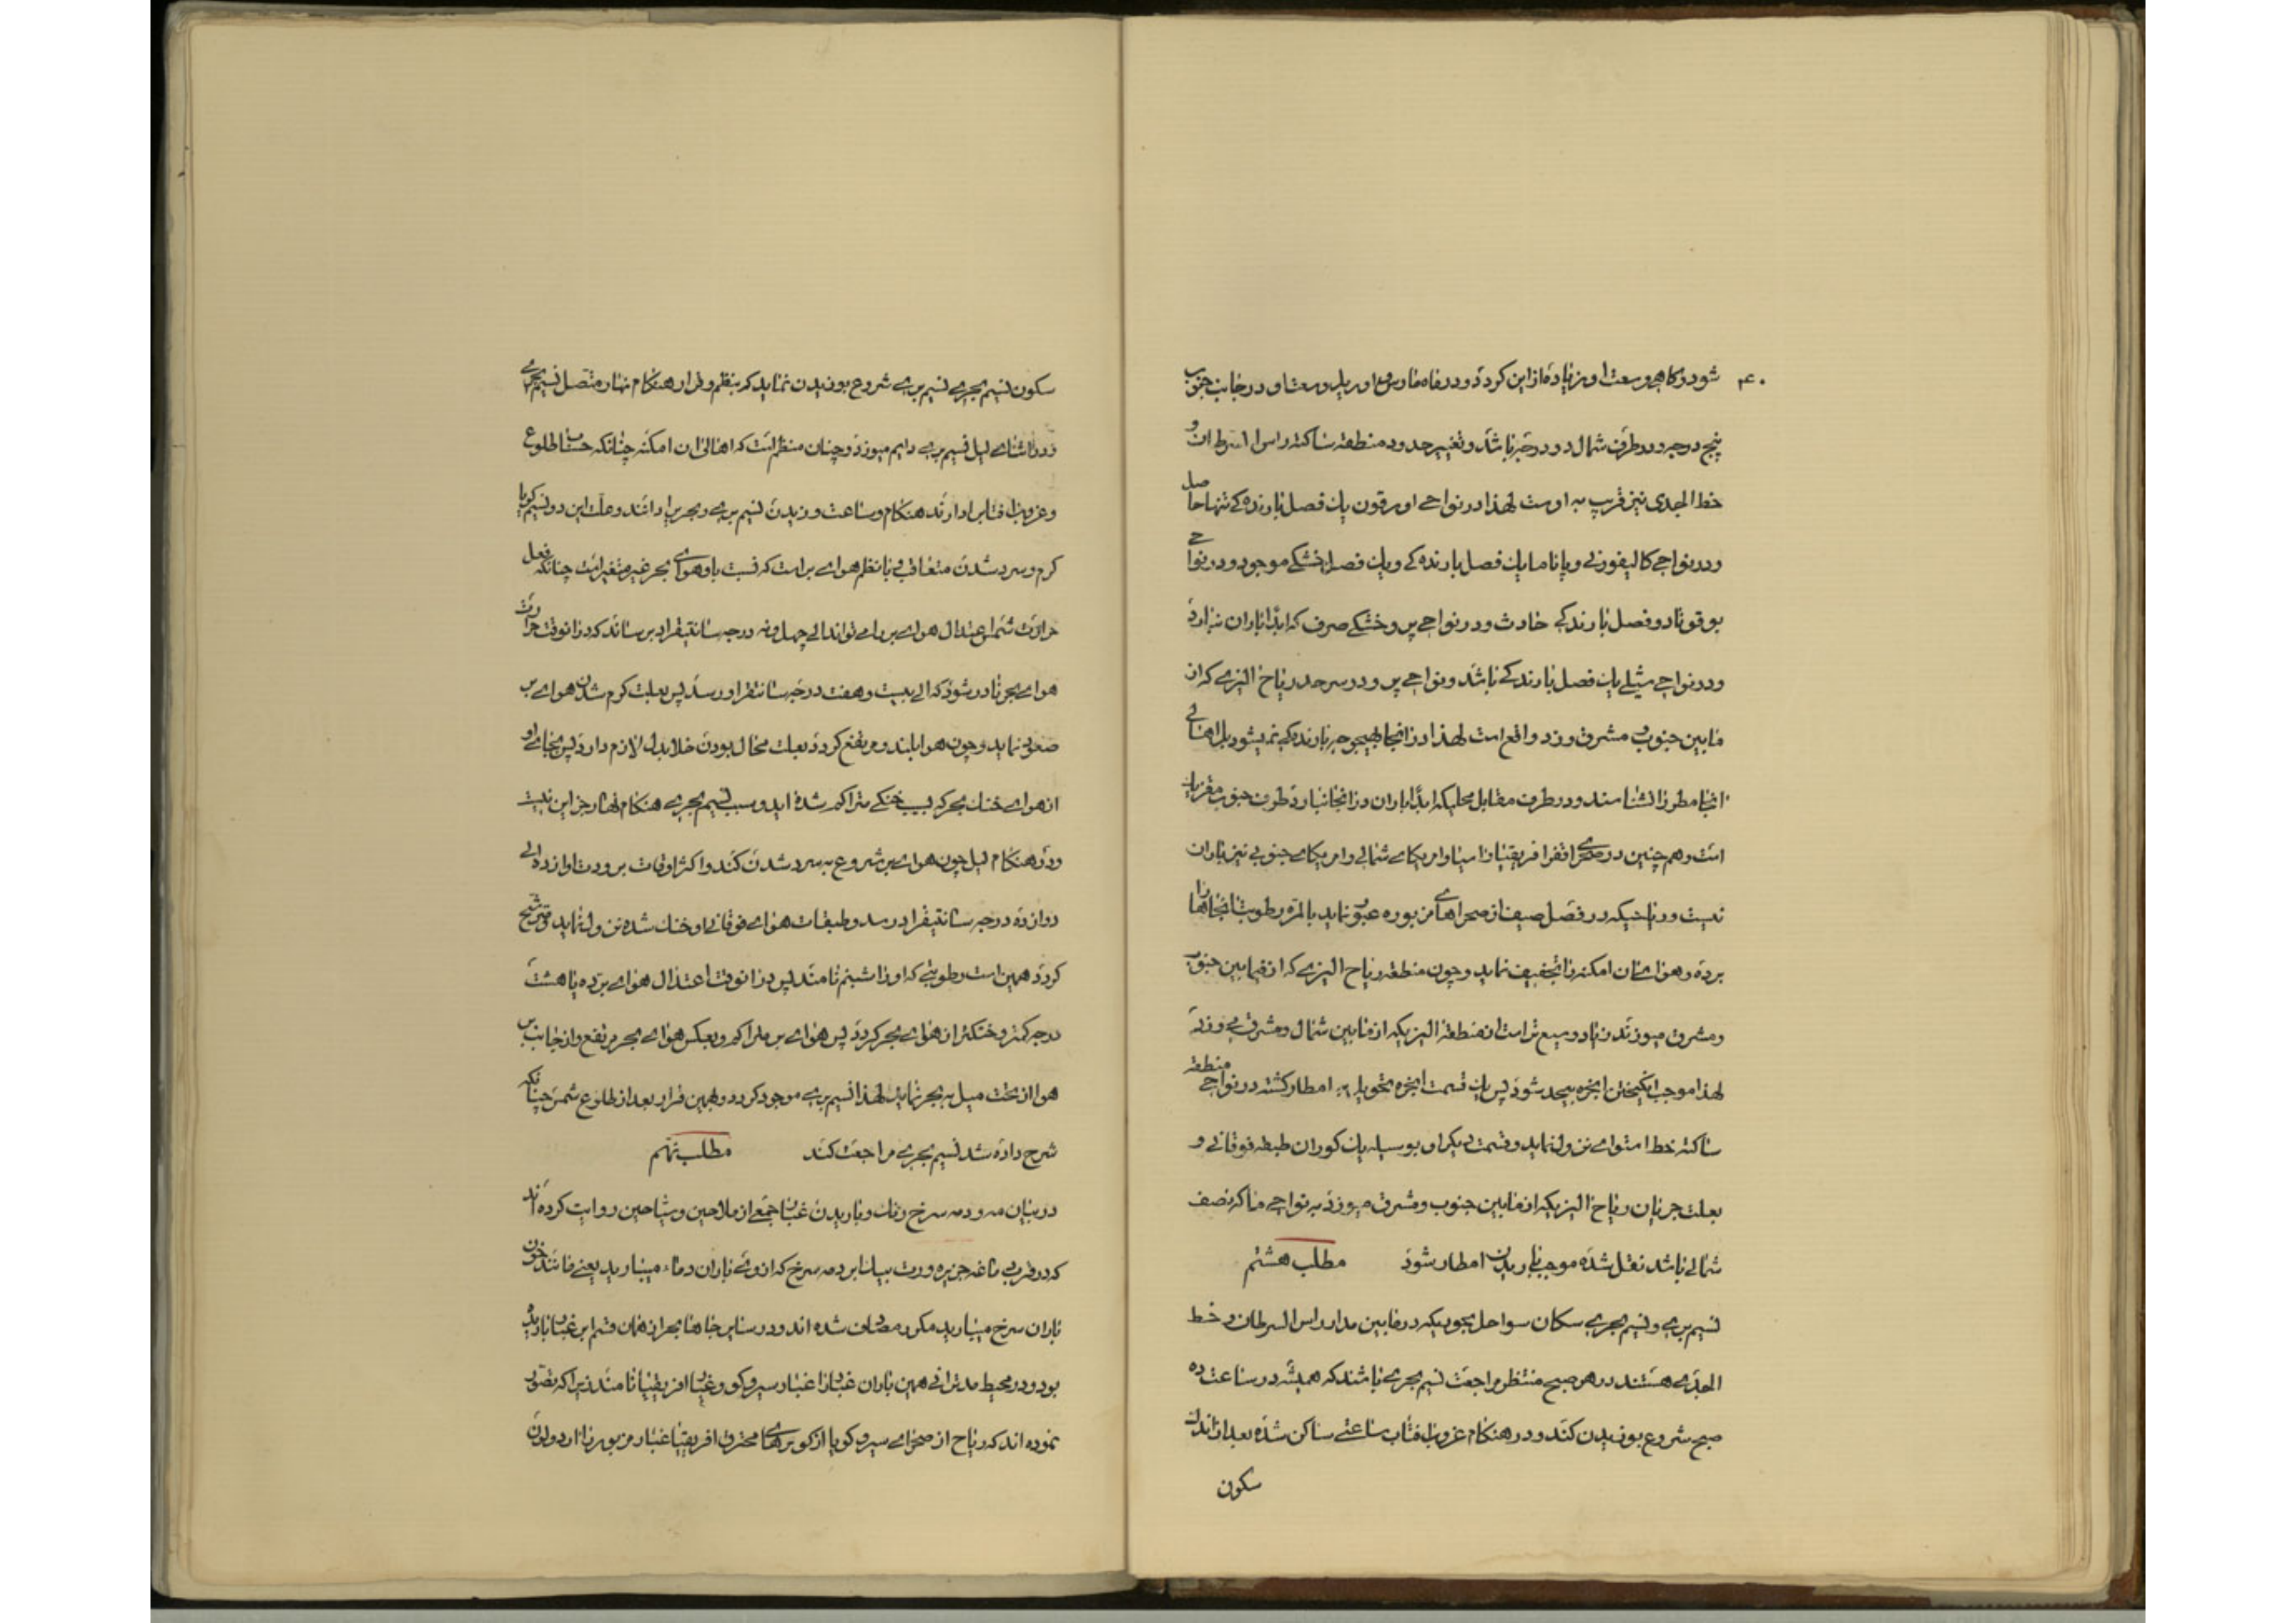 ۴۰
شود و گاهی وسعت او زیاده از این گردد و در ماه مارس و اوریل وسعت او در جانب جنوب
پنج درجه و در طرف شمال دو درجه باشد و تغییر حدود منطقه ساکته راس السرطان و
خط الجدی نیز قریب به اوست لهذا در نواحی او یک فصل بارنده کی تنها حاصل
و در نواحی کالیفورنی و پاناما یک فصل بارنده کی و یک فصل خشکی موجود و در نواحی
بوقوتا دو فصل بارندکی حادث و در نواحی پرو خشکی صرف که ابدا باران نبارد
و در نواحی شیلی یک فصل بارندکی باشد و نواحی پرو در سرحد ریاح الیزی که از
مابین جنوب و مشرق وزد واقع است لهذا در آنجا بهیچوجه بارنده کی نمیشود بل اهالی
آنجا مطر را نشناسند و در طرف مقابل محلیکه ابدا باران در آنجا نبارد طرف جنوب
است و هم چنین در صحرای افریقا و آسیا و امریکای شمالی و امریکای جنوبی نیز باران
نیست و ریاحیکه در فصل صیف از صحراهای مزبوره عبور نماید بالمره رطوبت آنجاها را
برده و هوای آن امکنه را تجفیف نماید و چون منطقه ریاح الیزی که از فیمابین جنوب
و مشرق میوزند زیاد وسیع تر است از منطقه الیزیکه از مابین شمال و مشرق می وزد
لهذا موجب انگیختن ابخره بیحد شود پس یک قسمت ابخره تحویل به امطار گشته در نواحی منطقه
ساکته خط استوای نزول نماید و قسمت دیگر او بوسیله یک کوران طبقه فوقانی و
بعلت جریان ریاح الیزیکه از مابین جنوب و مشرق میوزد به نواحی ما که نصف
شمالی باشد نقل شده موجب باریدن امطار شود مطلب هشتم
نسیم بری و نسیم بحری سکان سواحل بحوریکه در مابین مدار راس السرطان و خط
الجدی هستند در هر صبح منتظر مراجعت نسیم بحری باشند که همیشه در ساعت ده
صبح شروع بوزیدن کند و در هنگام غروب آفتاب ساعتی ساکن شده بعد از اندک
سکون
سکون نسیم بحری نسیم بری شروع بوزیدن نماید که بنظم و قرار هنگام نهار متصل نسیم بحری
و در اثنای لیل نسیم بری دایم میوزد و چنان منظم است که اهالی آن امکنه چنانکه حساب طلوع
و غروب آفتاب را دارند هنگام و ساعت وزیدن نسیم بری و بحری را دانند و علت این دو نسیم گویا
گرم و سرد شدن متعاقب با نظم هوای بر است که نسبت باو هوای بحر غیر متغیر است چنانکه فعل
حرارت شمس اعتدال هوای بر را می تواند الی چهل و نه درجه سانتیقراد برساند که در آنوقت حرارت
هوای بحر نادر شود که الی بیست و هفت درجه سانتقراد رسد پس بعلت گرم شدن هوای بر
صعود نماید و چون هوا بلند و مرتفع گردد بعلت محال بودن خلا بدل لازم دارد پس بجای او
از هوای خنک بحر که بسبب خنکی متراکم شده آید و سبب نسیم بحری هنگام نهار جز این نیست
و در هنگام لیل چون هوای بر شروع به سرد شدن کند و اکثر اوقات برودت او از ده الی
دوازده درجه سانتیقراد رسد و طبقات هوای فوقانی او خنک شده نزول نماید
گردد همین است رطوبتی که او را شبنم نامند پس در آنوقت اعتدال هوای بر ده یا هشت
درجه کمتر و خنکتر از هوای بحر گردد پس هوای بر متراکم و بعکس هوای بحر مرتفع و از جانب بر
هوا از تحت میل به بحر نماید لهذا نسیم بری موجود گردد و بهمین قرار بعد از طلوع شمس چنانکه
شرح داده شد نسیم بحری مراجعت کند مطلب نهم
در بیان مه و دمه سرخ رنگ و باریدن غبار جمعی از ملاحین و سیاحین روایت کرده اند
که در قرب جزیره ورت بسیار دمه سرخ که از وی باران دماء میبارید یعنی مانند خون
باران سرخ میبارید مکرر مصادف شده اند و در سایر جاها بحر از همان قسم ابر غبار باریده
بود و در محیط مدیترانی همین باران غبار را غبار سیروکو و غبار افریقیا نامند زیرا که تصور
نموده اند که ریاح از صحرای سیروکو یا از کویرهای محترق افریقیا غبار مزبور را آرد و لیکن